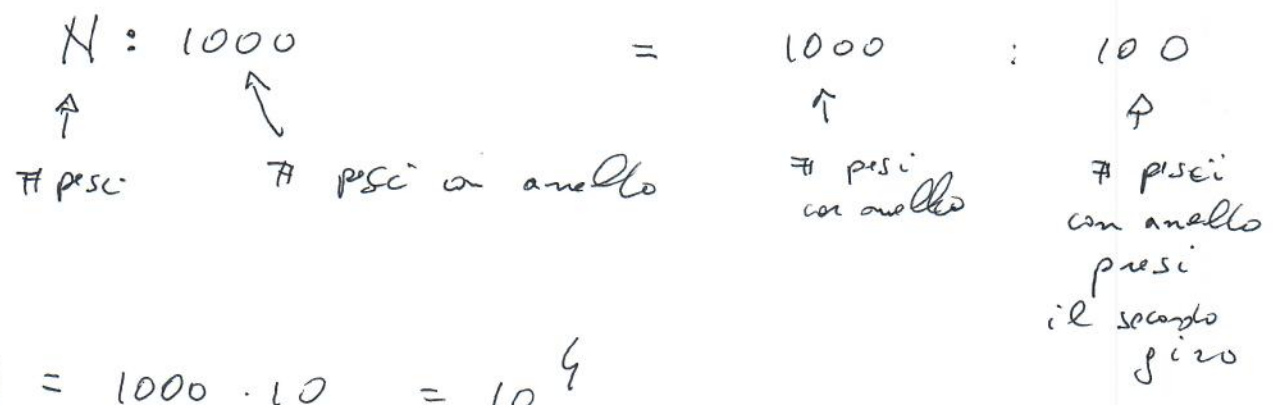 N : 1000 = 1000 : 100
# pesci # pesci con anello # pesi con anello # piscii con anello presi il secondo giro
= 1000 · 10 = 10⁴